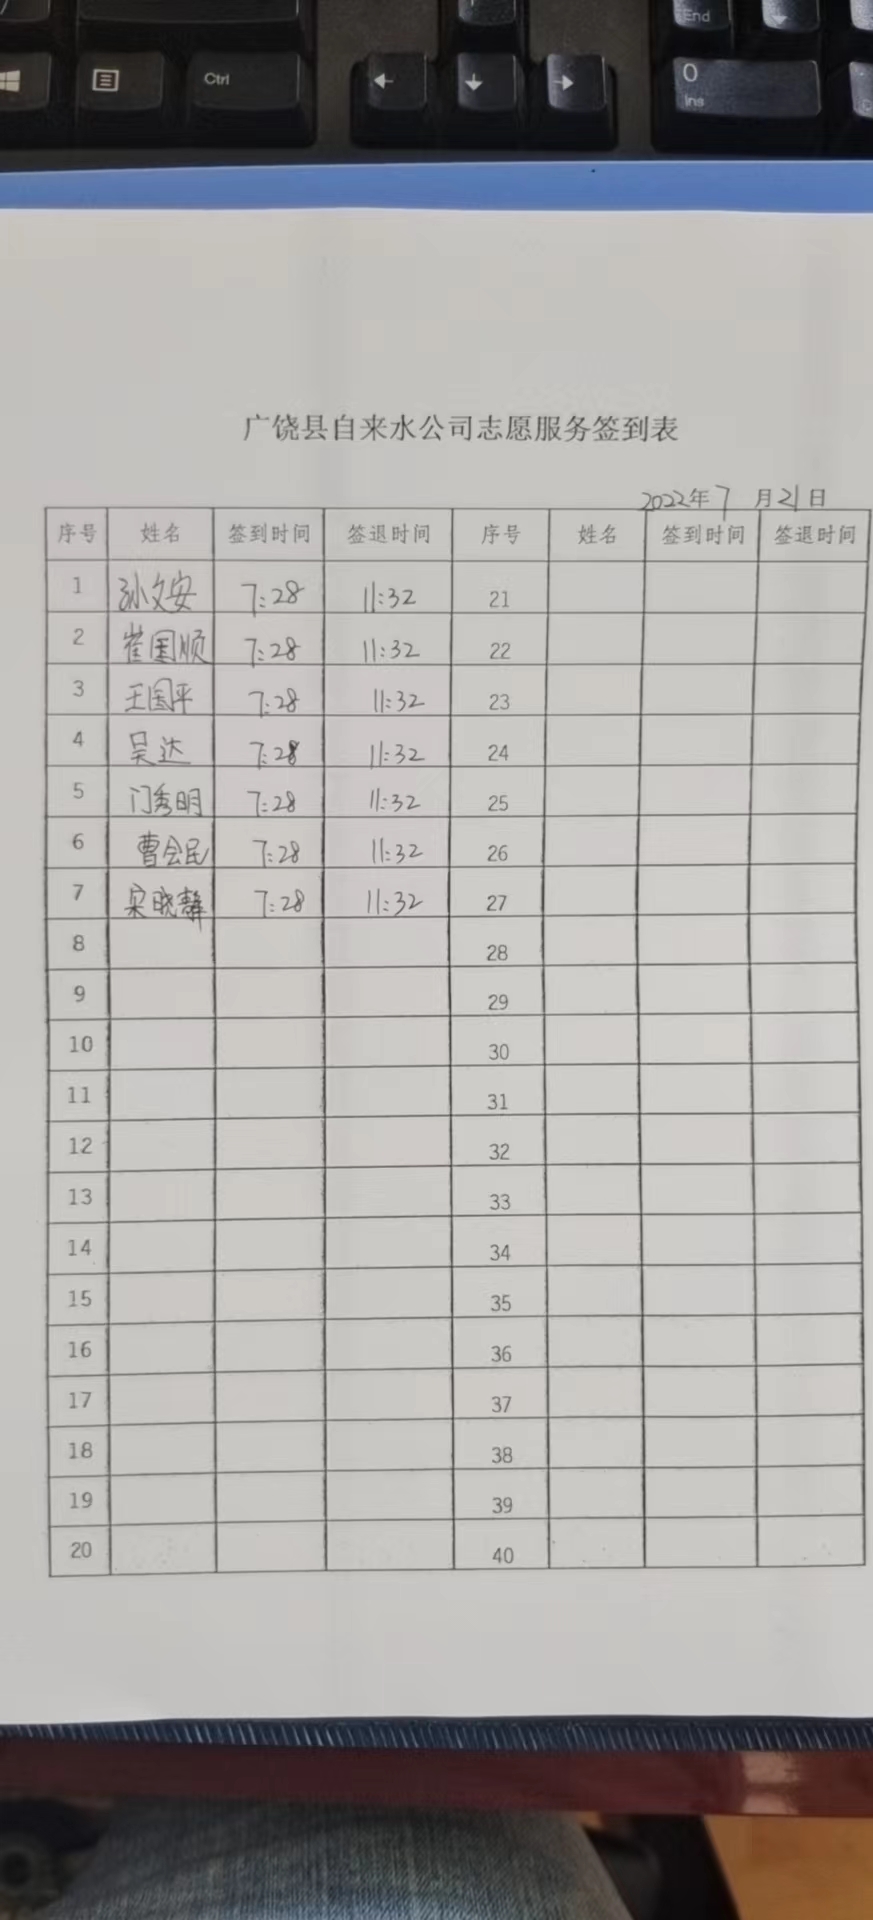 End
Ctrl
0
Ins
广饶县自来水公司志愿服务签到表
2022年7月21日
序号 姓名 签到时间 签退时间 序号 姓名 签到时间 签退时间
1 孙文安 7:28 11:32 21
2 崔国顺 7:28 11:32 22
3 王国平 7:28 11:32 23
4 吴达 7:28 11:32 24
5 门秀明 7:28 11:32 25
6 曹会民 7:28 11:32 26
7 宋晓静 7:28 11:32 27
8 28
9 29
10 30
11 31
12 32
13 33
14 34
15 35
16 36
17 37
18 38
19 39
20 40